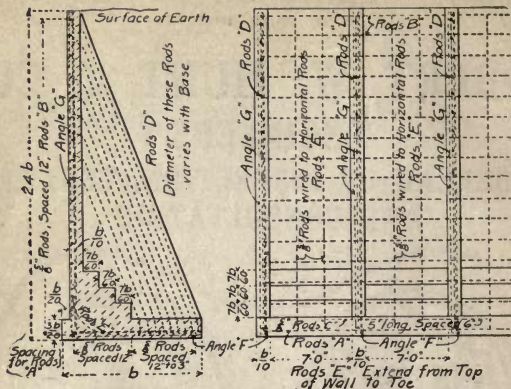 Surface of Earth
24b
⅜" Rods, Spaced 12", Rods "B"
Angle "G"
Rods "D"
Diameter of these Rods
varies with Base
b/10
7b/60
7b/60
7b/60
Spacing
for Rods
"A"
⅜" Rods
Spaced 12"
⅜" Rods
Spaced
12" to 3"
Angle "F"
b
Rods "B"
Angle "G"
Rods "D"
⅜" Rods wired to Horizontal Rods
Rods "E"
Angle "G"
Rods "D"
⅜" Rods wired to Horizontal Rods
Rods "E"
Angle "G"
Rods "D"
7b 7b 7b
60 60 60
⅜" Rods "C" 5' long, Spaced 6"
Rods "A"
Angle "F"
b/10
7'-0"
b/10
7'-0"
Rods "E" Extend from Top
of Wall to Toe